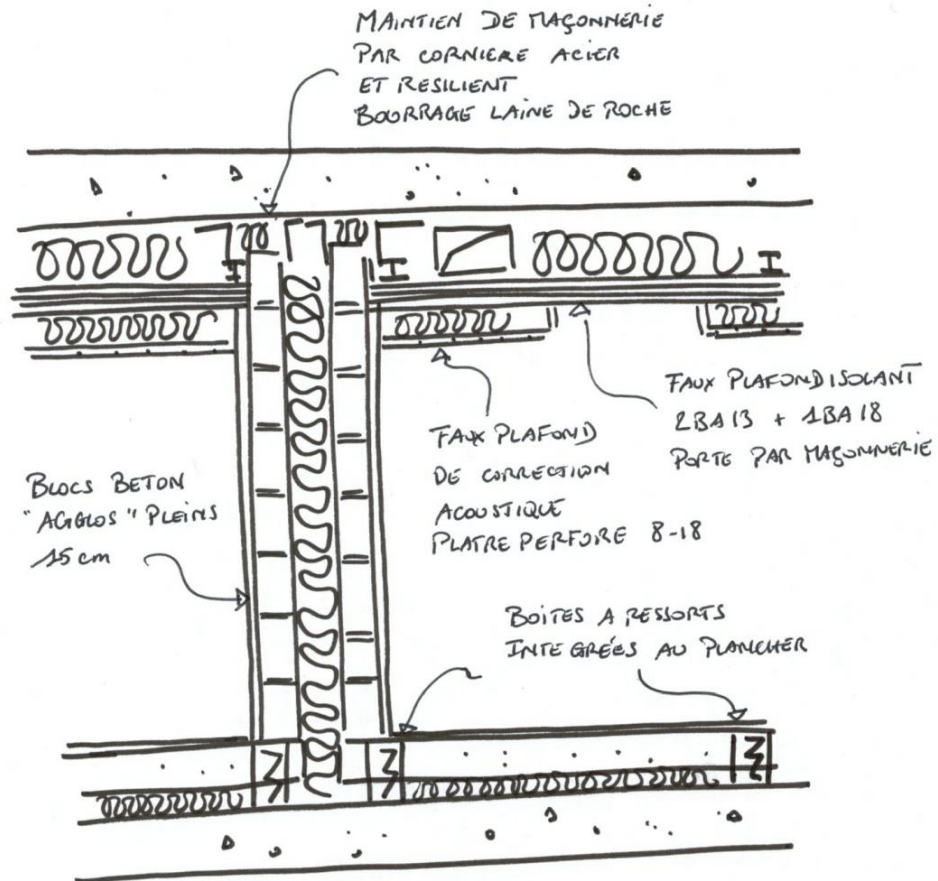 MAINTIEN DE MAÇONNERIE
PAR CORNIERE ACIER
ET RESILIENT
BOURRAGE LAINE DE ROCHE
FAUX PLAFOND ISOLANT
2BA13 + 1BA18
PORTE PAR MAÇONNERIE
FAUX PLAFOND
DE CORRECTION
ACOUSTIQUE
PLATRE PERFORE 8-18
BLOCS BETON
"AGGLOS" PLEINS
15 cm
BOITES A RESSORTS
INTEGRÉES AU PLANCHER